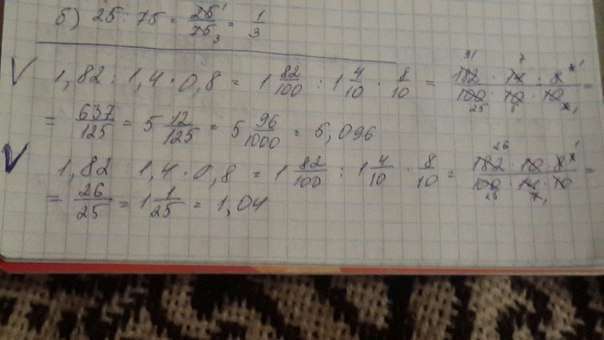 б) 25 : 75 = 25¹/75₃ = 1/3
1,82 : 1,4 · 0,8 = 1 82/100 : 1 4/10 · 8/10 = 182 · 14 · 8 / 100 · 10 · 10 =
= 637/125 = 5 12/125 = 5 96/1000 = 5,096
1,82 : 1,4 · 0,8 = 1 82/100 : 1 4/10 · 8/10 = 182 · 10 · 8 / 100 · 14 · 10 =
= 26/25 = 1 1/25 = 1,04